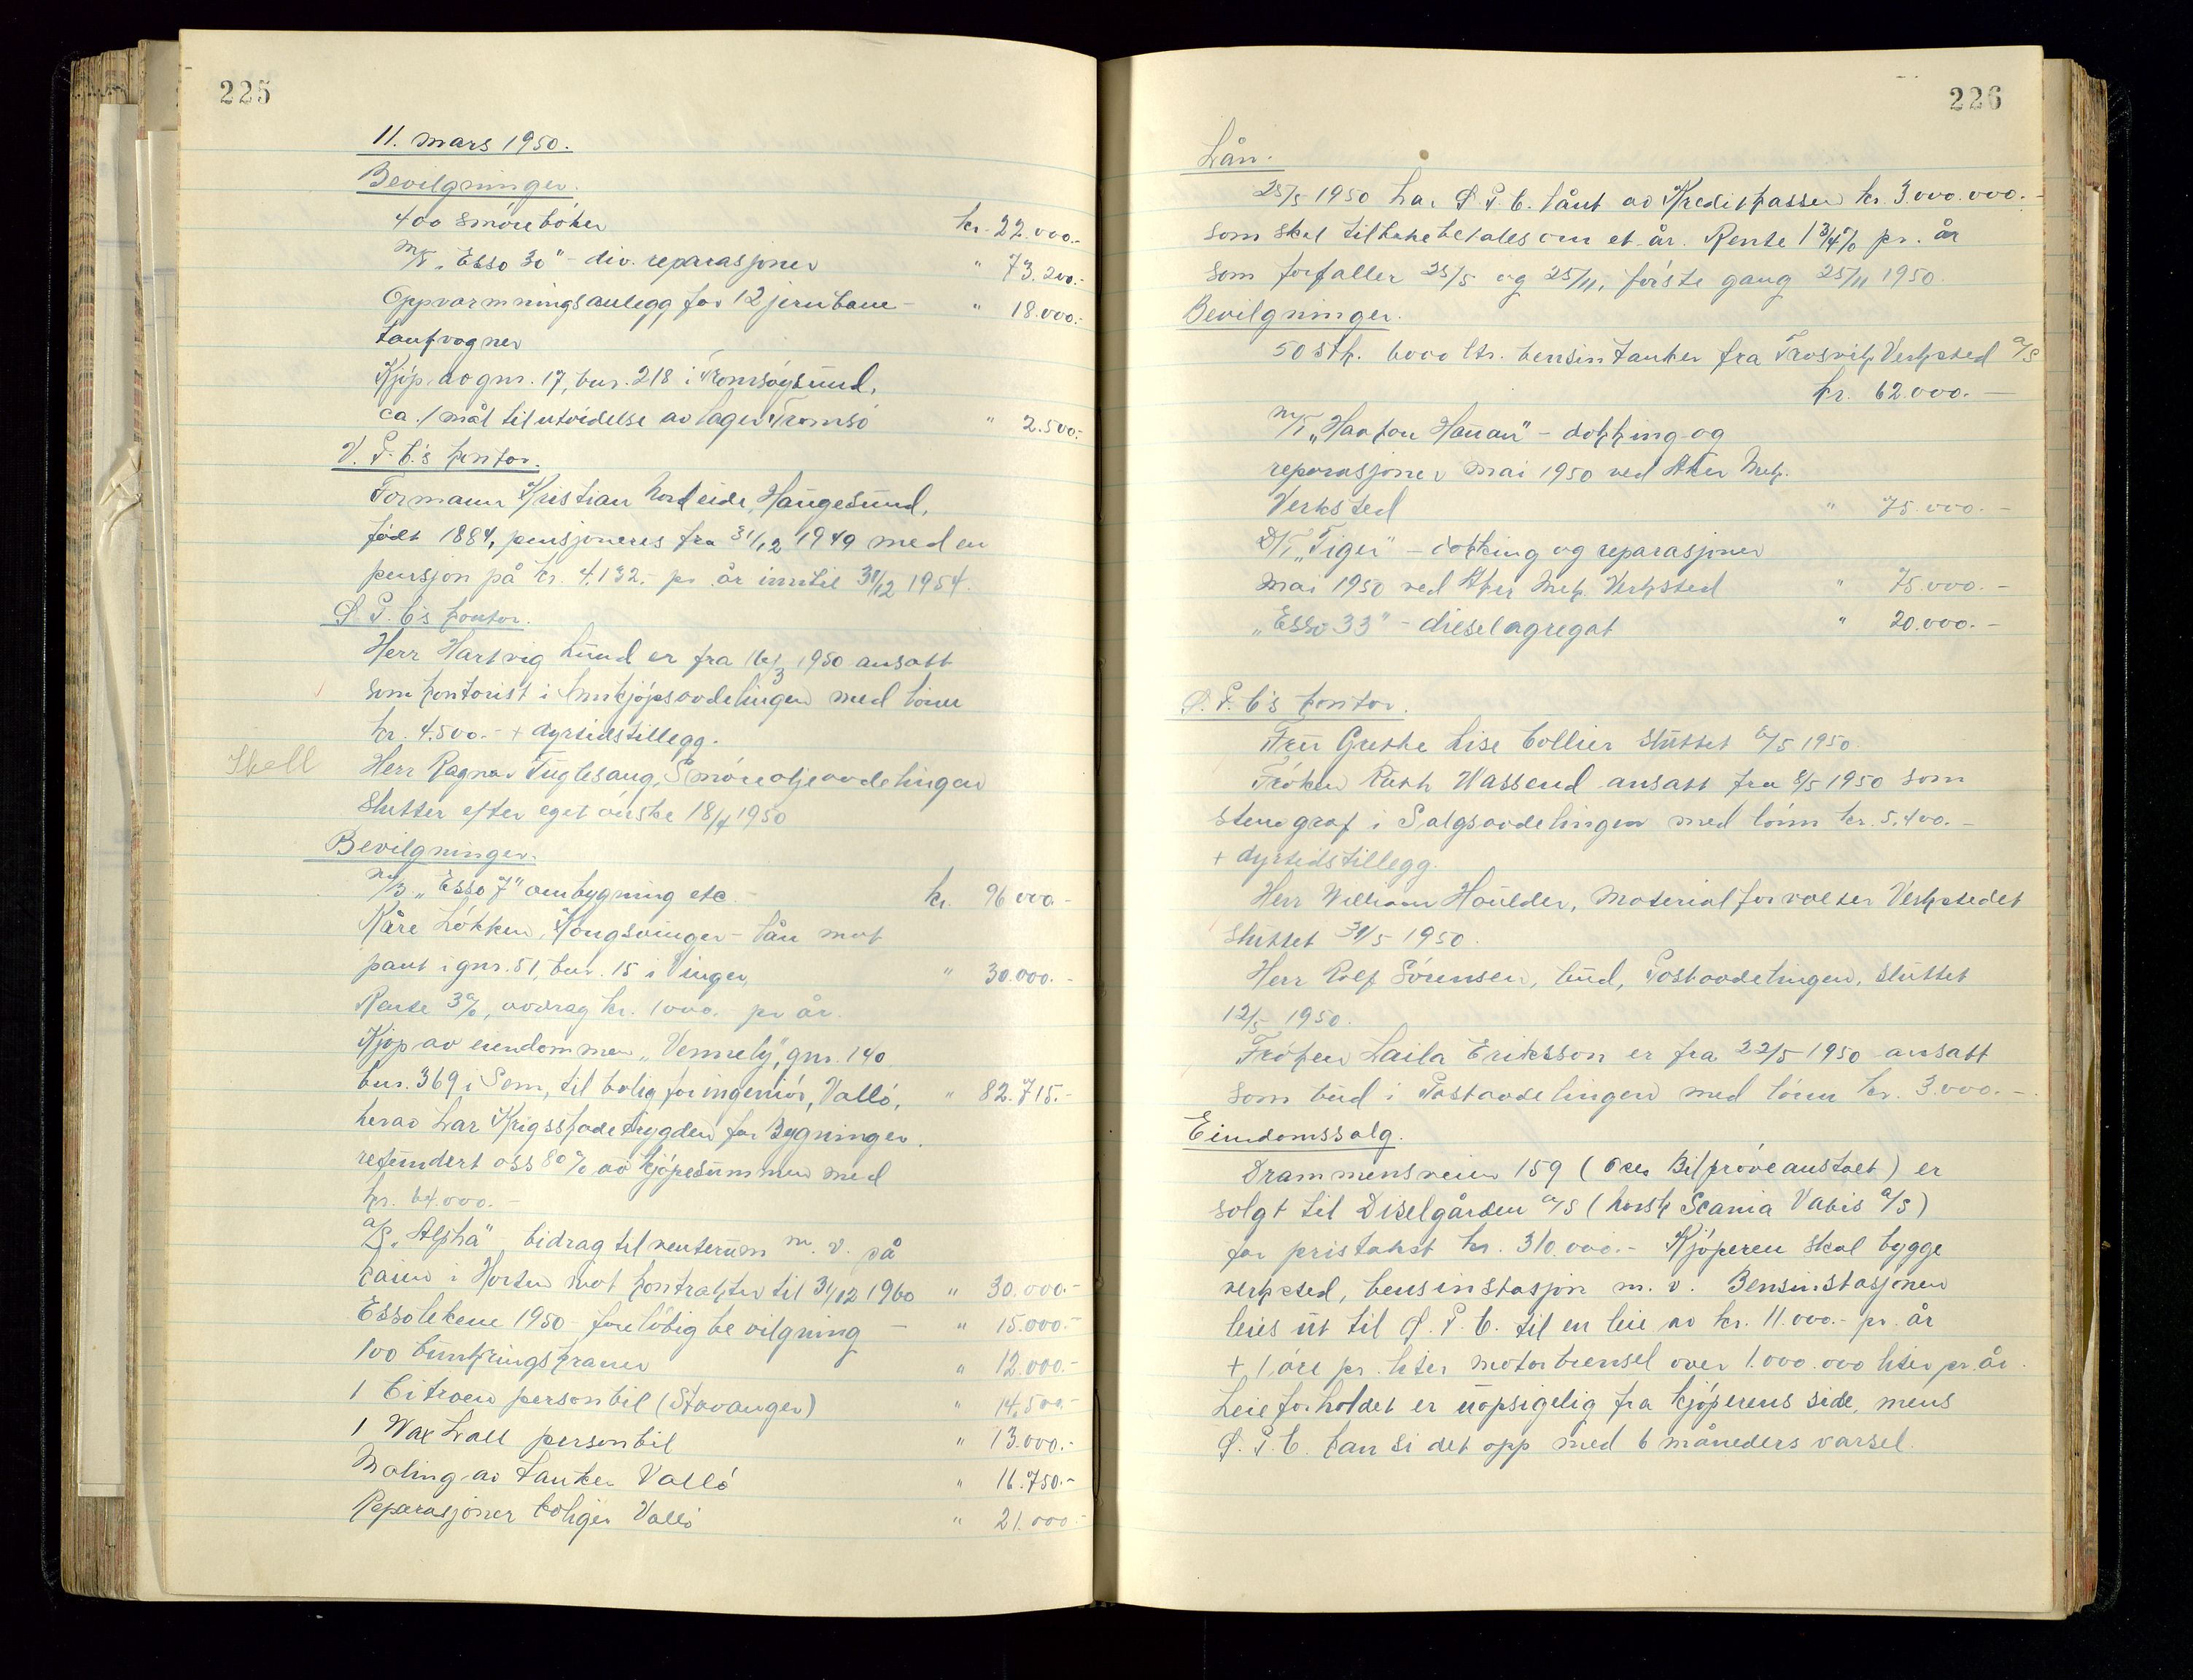 225
11. mars 1950.
Bevilgninger.
400 smöreböker kr. 22.000.-
M/T „Esso 30" - div. reparasjoner " 73.200.-
Oppvarmningsanlegg for 12 jernbane- " 18.000.-
tankvogner
Kjöp av gnr. 17, bnr. 218 i Tromsöysund,
ca. 1 mål til utvidelse av lager Tromsö " 2.500.-
V. P. C.'s kontor.
Formann Kristian Nordeide, Haugesund,
født 1884, pensjoneres fra 31/12 1949 med en
pensjon på kr. 4.132.- pr. år inntil 31/12 1954.
Ö. P. C.'s kontor.
Herr Hartvig Lund er fra 16/3 1950 ansatt
som kontorist i Innkjöpsavdelingen med lönn
kr. 4.500.- + dyrtidstillegg.
Skell Herr Ragnar Fuglesang, Smöreoljeavdelingen
slutter efter eget önske 18/4 1950
Bevilgninger.
M/B „Esso 7" ombygning etc. - kr. 96.000.-
Kåre Lökken, Kongsvinger - lån mot
pant i gnr. 51, bnr. 15 i Vinger, " 30.000.-
Rente 3%, avdrag kr. 1000.- pr år.
Kjöp av eiendommen „Vennely", gnr. 140
bnr. 369 i Sem, til bolig for ingeniör, Vallö, " 82.715.-
herav har Krigsskadetrygden for Bygninger
refundert oss 80% av kjöpesummen med
kr. 64.000.-
A/S „Alpha" - bidrag til venterum m. v. på
kaien i Horten mot kontrakter til 31/12 1960 " 30.000.-
Essolekene 1950 - forelöbig bevilgning - " 15.000.-
100 bunkringskraner " 12.000.-
1 Citroen personbil (Stavanger) " 14.500.-
1 Wauxhall personbil " 13.000.-
Maling av tanker Vallö " 16.750.-
Reparasjoner boliger Vallö " 21.000.-
226
Lån.
25/5 1950 har Ö. P. C. lånt av Kreditkassen kr. 3.000.000.-
som skal tilbakebetales om et år. Rente 1 3/4% pr. år
som forfaller 25/5 og 25/11, förste gang 25/11 1950.
Bevilgninger.
50 stk. 6000 ltr. bensintanker fra Trosvik Verksted A/S
kr. 62.000.-
M/T „Haakon Hauan" - dokking og
reparasjoner mai 1950 ved Aker Mek.
Verksted " 75.000.-
D/T „Tiger" - dokking og reparasjoner
mai 1950 ved Aker Mek. Verksted " 75.000.-
„Esso 33" - dieselagregat " 20.000.-
Ö. P. C.'s kontor.
Fru Grethe Lise Collier sluttet 6/5 1950.
Fröken Ruth Wassend ansatt fra 8/5 1950 som
stenograf i Salgsavdelingen med lönn kr. 5.400.-
+ dyrtidstillegg.
Herr William Houlder, Materialforvalter Verkstedet
sluttet 31/5 1950.
Herr Rolf Sörensen, bud, Postavdelingen, sluttet
12/5 1950.
Fröken Laila Eriksson er fra 22/5 1950 ansatt
som bud i Postavdelingen med lönn kr. 3.000.-
Eiendomssalg.
Drammensveien 159 ( Bilpröveanstalt) er
solgt til Diselgården A/S (Norsk Scania Vabis A/S)
for pristakst kr. 310.000.- Kjöperen skal bygge
verksted, bensinstasjon m. v. Bensinstasjonen
leies ut til Ö. P. C. til en leie av kr. 11.000.- pr. år
+ 1 öre pr. liter motorbrensel over 1.000.000 liter pr. år.
Leieforholdet er uopsigelig fra kjöperens side, mens
Ö. P. C. kan si det opp med 6 måneders varsel.